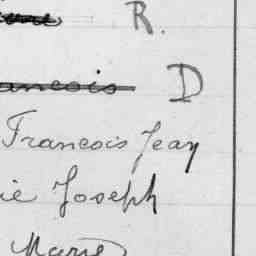 R.
ancois D
Francois Jean
ie Joseph
Marie